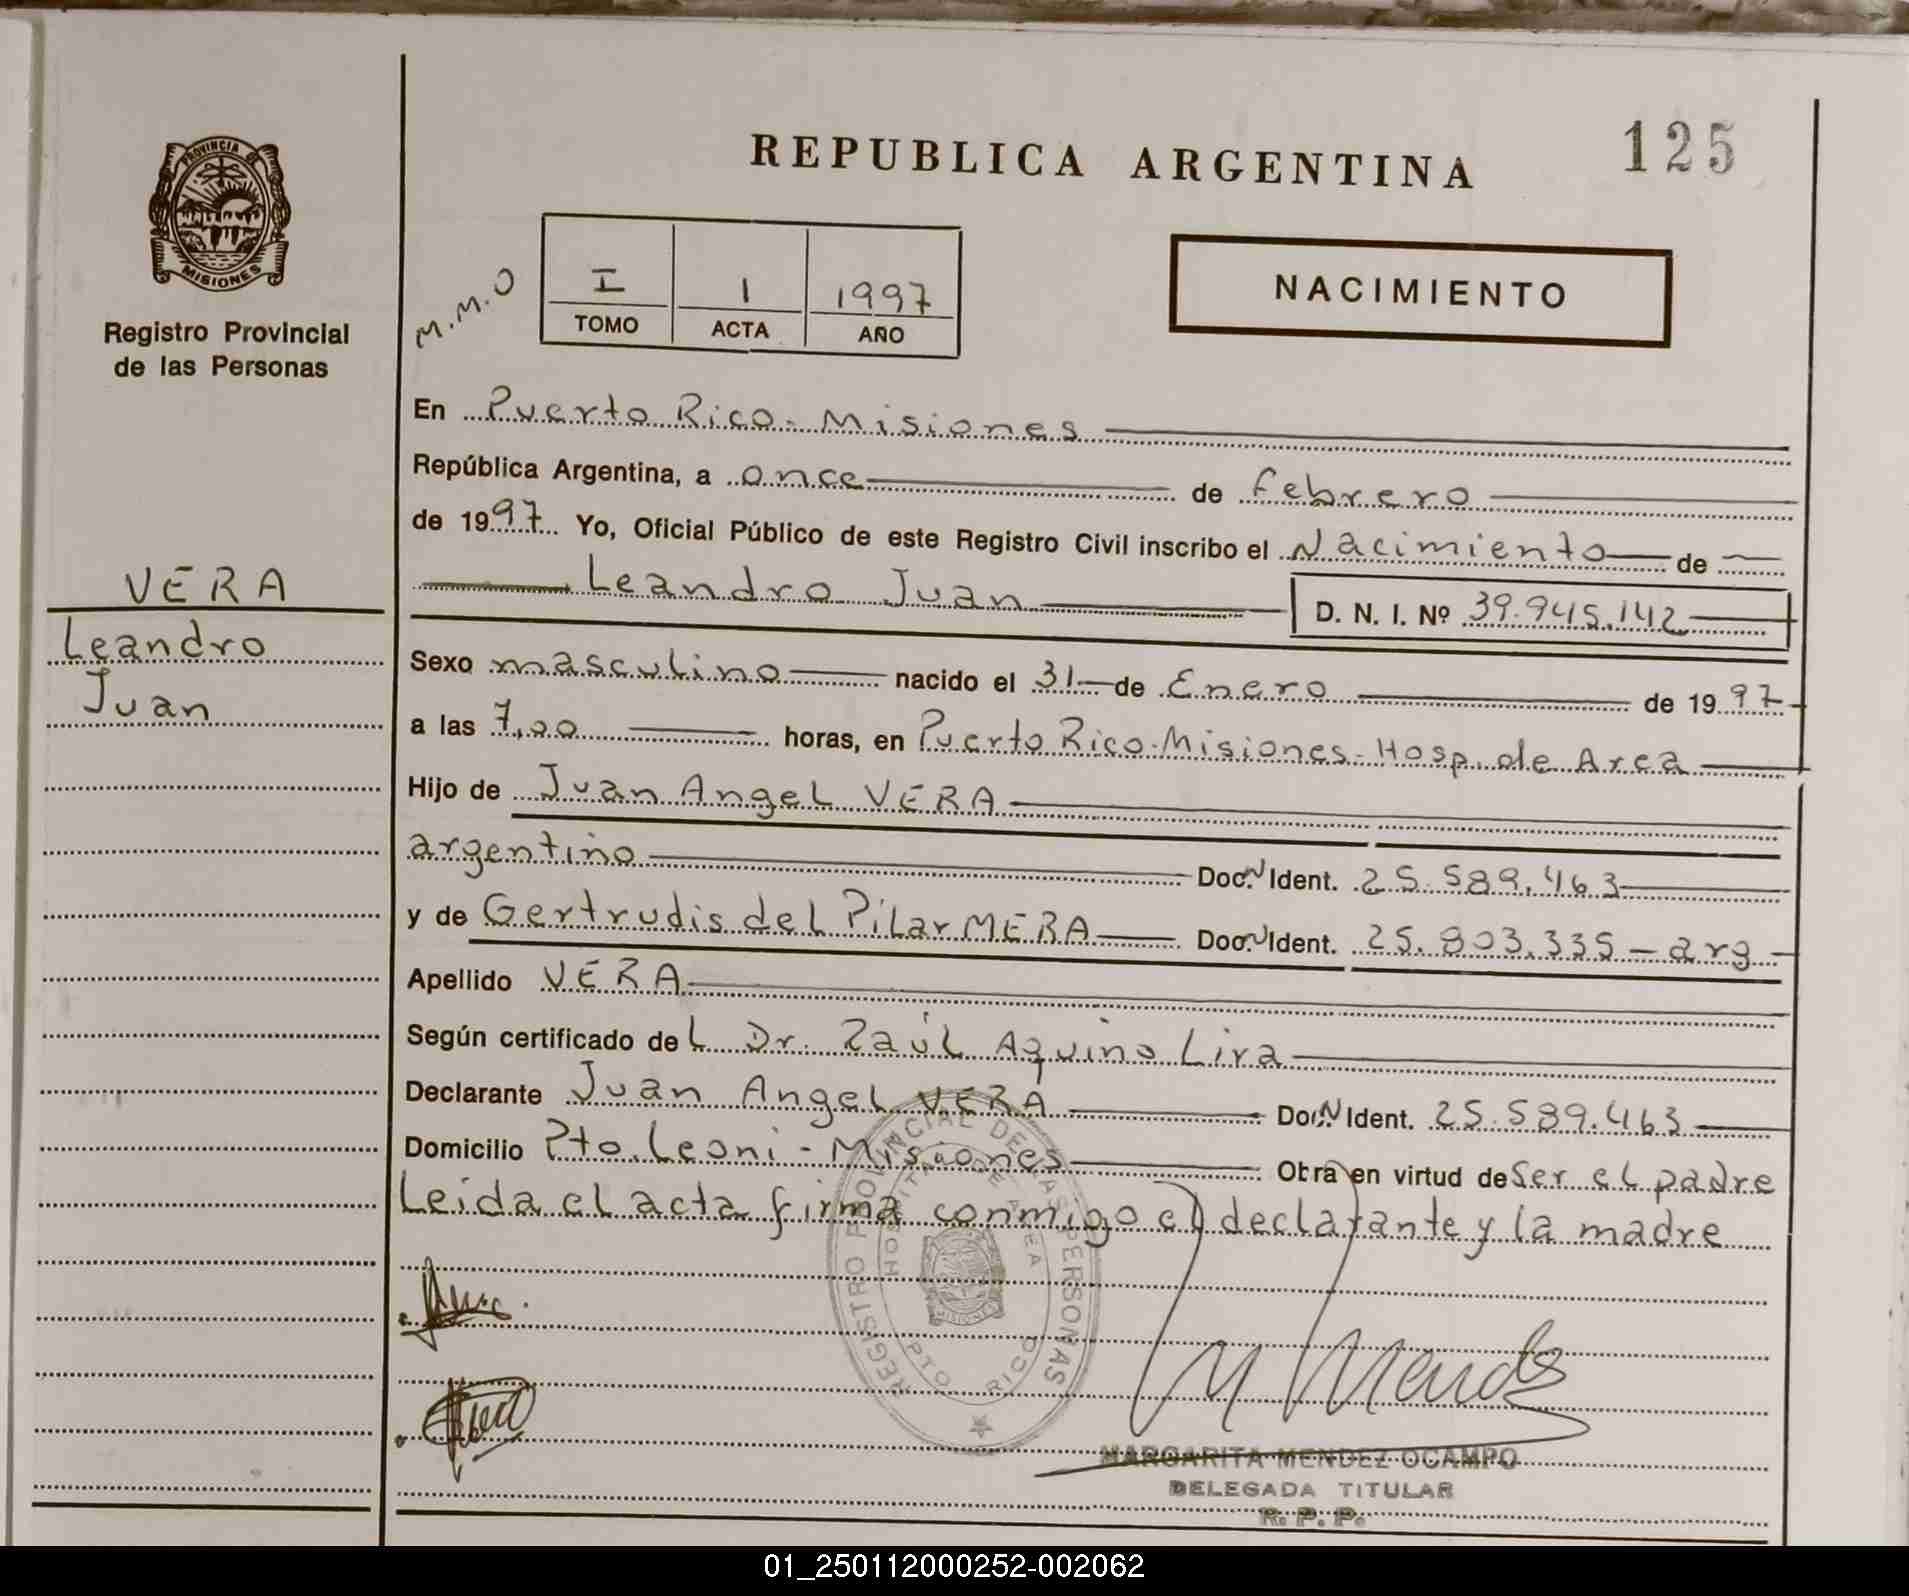 PROVINCIA DE
MISIONES
Registro Provincial
de las Personas
VERA
Leandro
Juan
REPUBLICA ARGENTINA
125
M.M.O
I
TOMO
1
ACTA
1997
AÑO
NACIMIENTO
En Puerto Rico - Misiones
República Argentina, a once de febrero
de 1997 Yo, Oficial Público de este Registro Civil inscribo el Nacimiento de
Leandro Juan D. N. I. Nº 39.945.142
Sexo masculino nacido el 31 de Enero de 1997
a las 7,00 horas, en Puerto Rico-Misiones-Hosp. de Area
Hijo de Juan Angel VERA
argentino Doc. N Ident. 25.589.463
y de Gertrudis del Pilar MERA Doc. N Ident. 25.803.335 - arg
Apellido VERA
Según certificado del Dr. Raúl Aquino Lira
Declarante Juan Angel VERA Doc. N Ident. 25.589.463
Domicilio Pto. Leoni - Misiones Obra en virtud de Ser el padre
Leida el acta firma conmigo el declarante y la madre
REGISTRO PROVINCIAL DE LAS PERSONAS
HOSPITAL DE AREA
MISIONES
PTO RICO
M Mendez
MARGARITA MENDEZ OCAMPO
DELEGADA TITULAR
R. P. P.
01_250112000252-002062